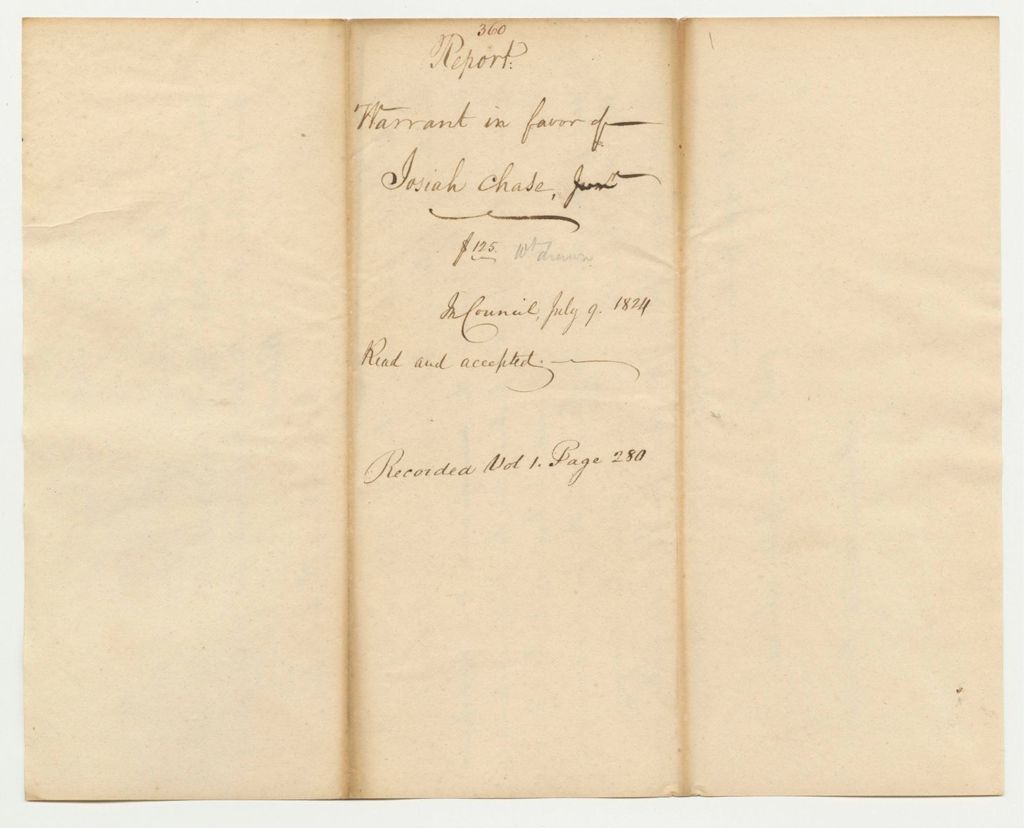 360
Report.
Warrant in favor of
Josiah Chase, Junr
$125. Wt drawn.
In Council, July 9. 1824
Read and accepted.
Recorded Vol 1. Page 280